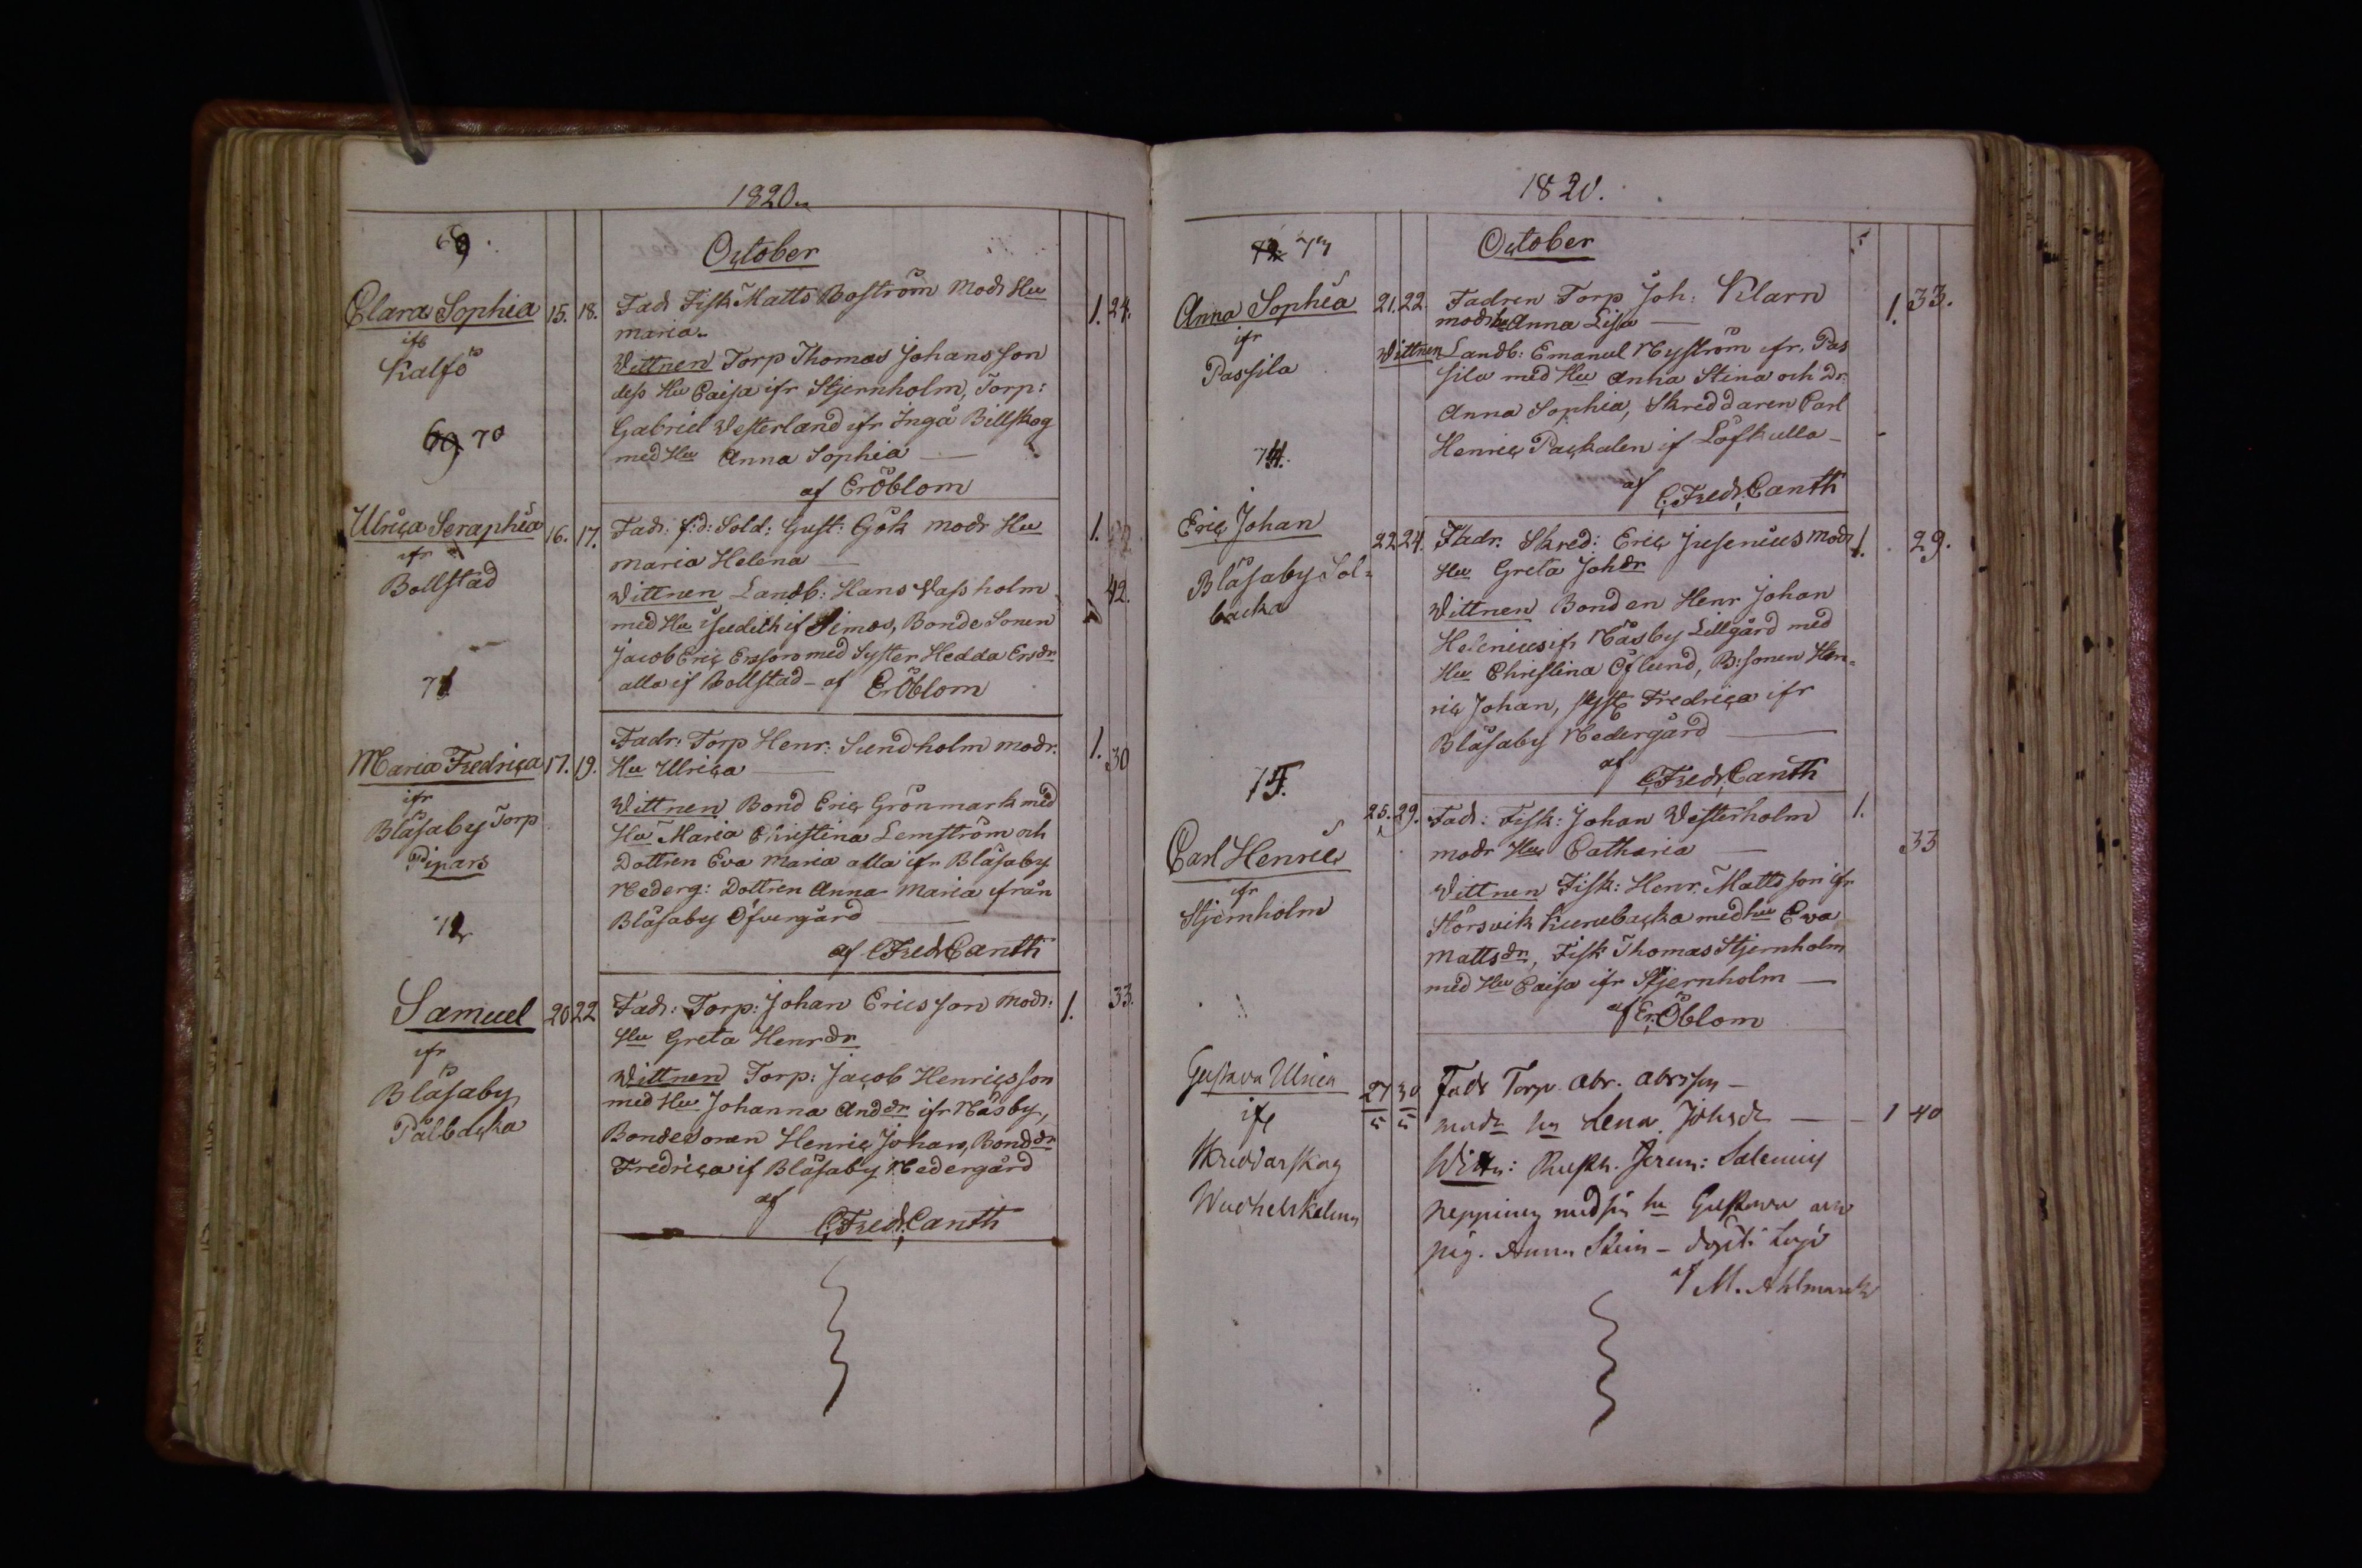 1820.
69.
October
Clara Sophia 15. 18. Fadr Fisk Matts Boström Modr Hu 1. 24.
ifr maria.
Kalfö Wittnen Torp Thomas Johansson
dess Hu Caisa ifr Stjernholm, Torp:
Gabriel Westerland ifr Ingå Billskog
69 70 med Hu Anna Sophia
af Er Öblom
Ulrica Seraphia 16. 17. Fadr: f:d: Sold: Gust: Gök modr Hu 1.
ifr maria Helena
Bollstad Wittnen Landb: Hans Wassholm 42.
med Hu Judith if Simos, Bonde Sonen
Jacob Eric Ersson med Syster Hedda Ersdr
71 alla if Bollstad - af Er Öblom
Fadr: Torp Henr: Sundholm modr. 1. 30
Maria Fredrica 17. 19. Hu Ulrica
ifr Wittnen Bond Eric Grönmark med
Bläsaby Torp Hu Maria Christina Lemström och
Pipars Dottren Eva Maria alla ifr Bläsaby
Nederg: Dottren Anna Maria ifrån
72 Bläsaby Öfvergård
af C Fredr Canth
Samuel 20 22 Fadr: Torp: Johan Ericsson Modr: 1. 33.
ifr Hu Greta Henrdr
Bläsaby Wittnen Torp: Jacob Henricsson
Pålbacka med Hu Johanna Anddr ifr Näsby,
Bondesonen Henric Johan, Bonddr
Fredrica if Bläsaby Nedergård
af
C: Fredr: Canth
1820.
72 73
October
Anna Sophia 21. 22. Fadren Torp Joh: Klarn 1. 33.
ifr modr hu Anna Lisa
Passila Wittnen Landb: Emanuel Nyström ifr. Pas
sila med Hu Anna Stina och Dr:
Anna Sophia, Skreddaren Carl
74. Henric Packalen if Löfkulla
af C: Fredr: Canth
Eric Johan 22 24. Fadr. Skred: Eric Jusenius Modr 1. 29.
Bläsaby Sol= Hu Greta Johdr
backa Wittnen Bonden Henr Johan
Helenius ifr Näsby Lillgård med
Hu Christina Öflund, B:sonen Hen=
ric Johan, Syst Fredrica ifr
Bläsaby Nedergård
75. af C Fredr Canth
25. 29. Fadr: Fisk: Johan Westerholm 1.
Carl Henric modr Hu Catharia 33
ifr Wittnen Fisk: Henr. Mattsson ifr
Stjernholm Störsvik Kurubacka med hu Eva
Mattsdr, Fisk Thomas Stjernholm
med Hu Caisa ifr Stjernholm
af Er. Öblom
Gustava Ulrica 27 30 Fadr Torp. Abr. Abrsson
ifr modr hu Lena Johsdr 1 40
Skreddarskog Wittn: Rusth. Jerem: Salenius
med sin hu Gustava
pig. Anna Stin
af M. Ahlmark